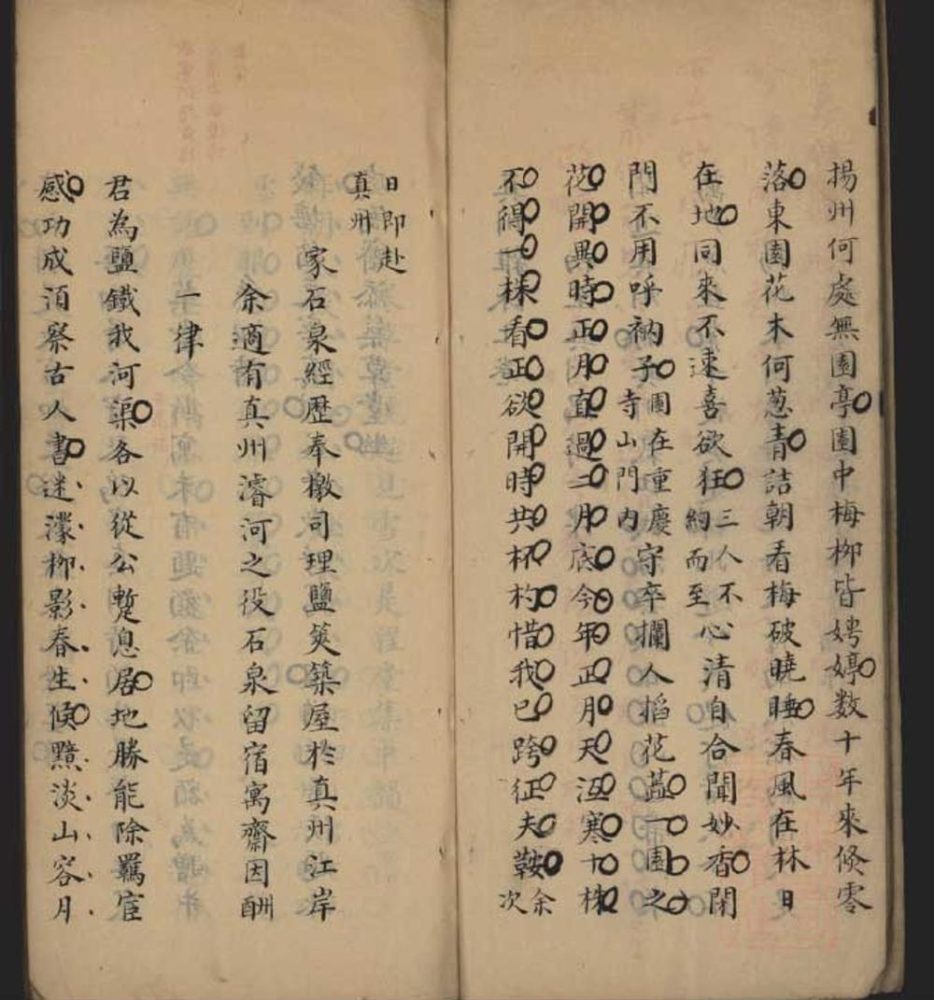 揚州何處無園亭園中梅柳皆娉婷数十年來倏零
落東園花木何葱青詰朝看梅破曉睡春風在林日
在地同來不速喜欲狂三人不約而至心清自合聞妙香閉
門不用呼衲子園在重慶寺山門内守卒攔人搯花蕋一園之
花開異時正月直過二月底今年正月天沍寒十株
不得一株看正欲開時共杯杓惜我已跨征夫鞍余次
日即赴真州
家石泉經歷奉檄司理鹽筴築屋於真州江岸
余適有真州濬河之役石泉留宿寓齋因酬
一律
君為鹽鐵我河渠各以從公蹔息居地勝能除羈宦
感功成須察古人書迷濛柳影春生候黯淡山容月